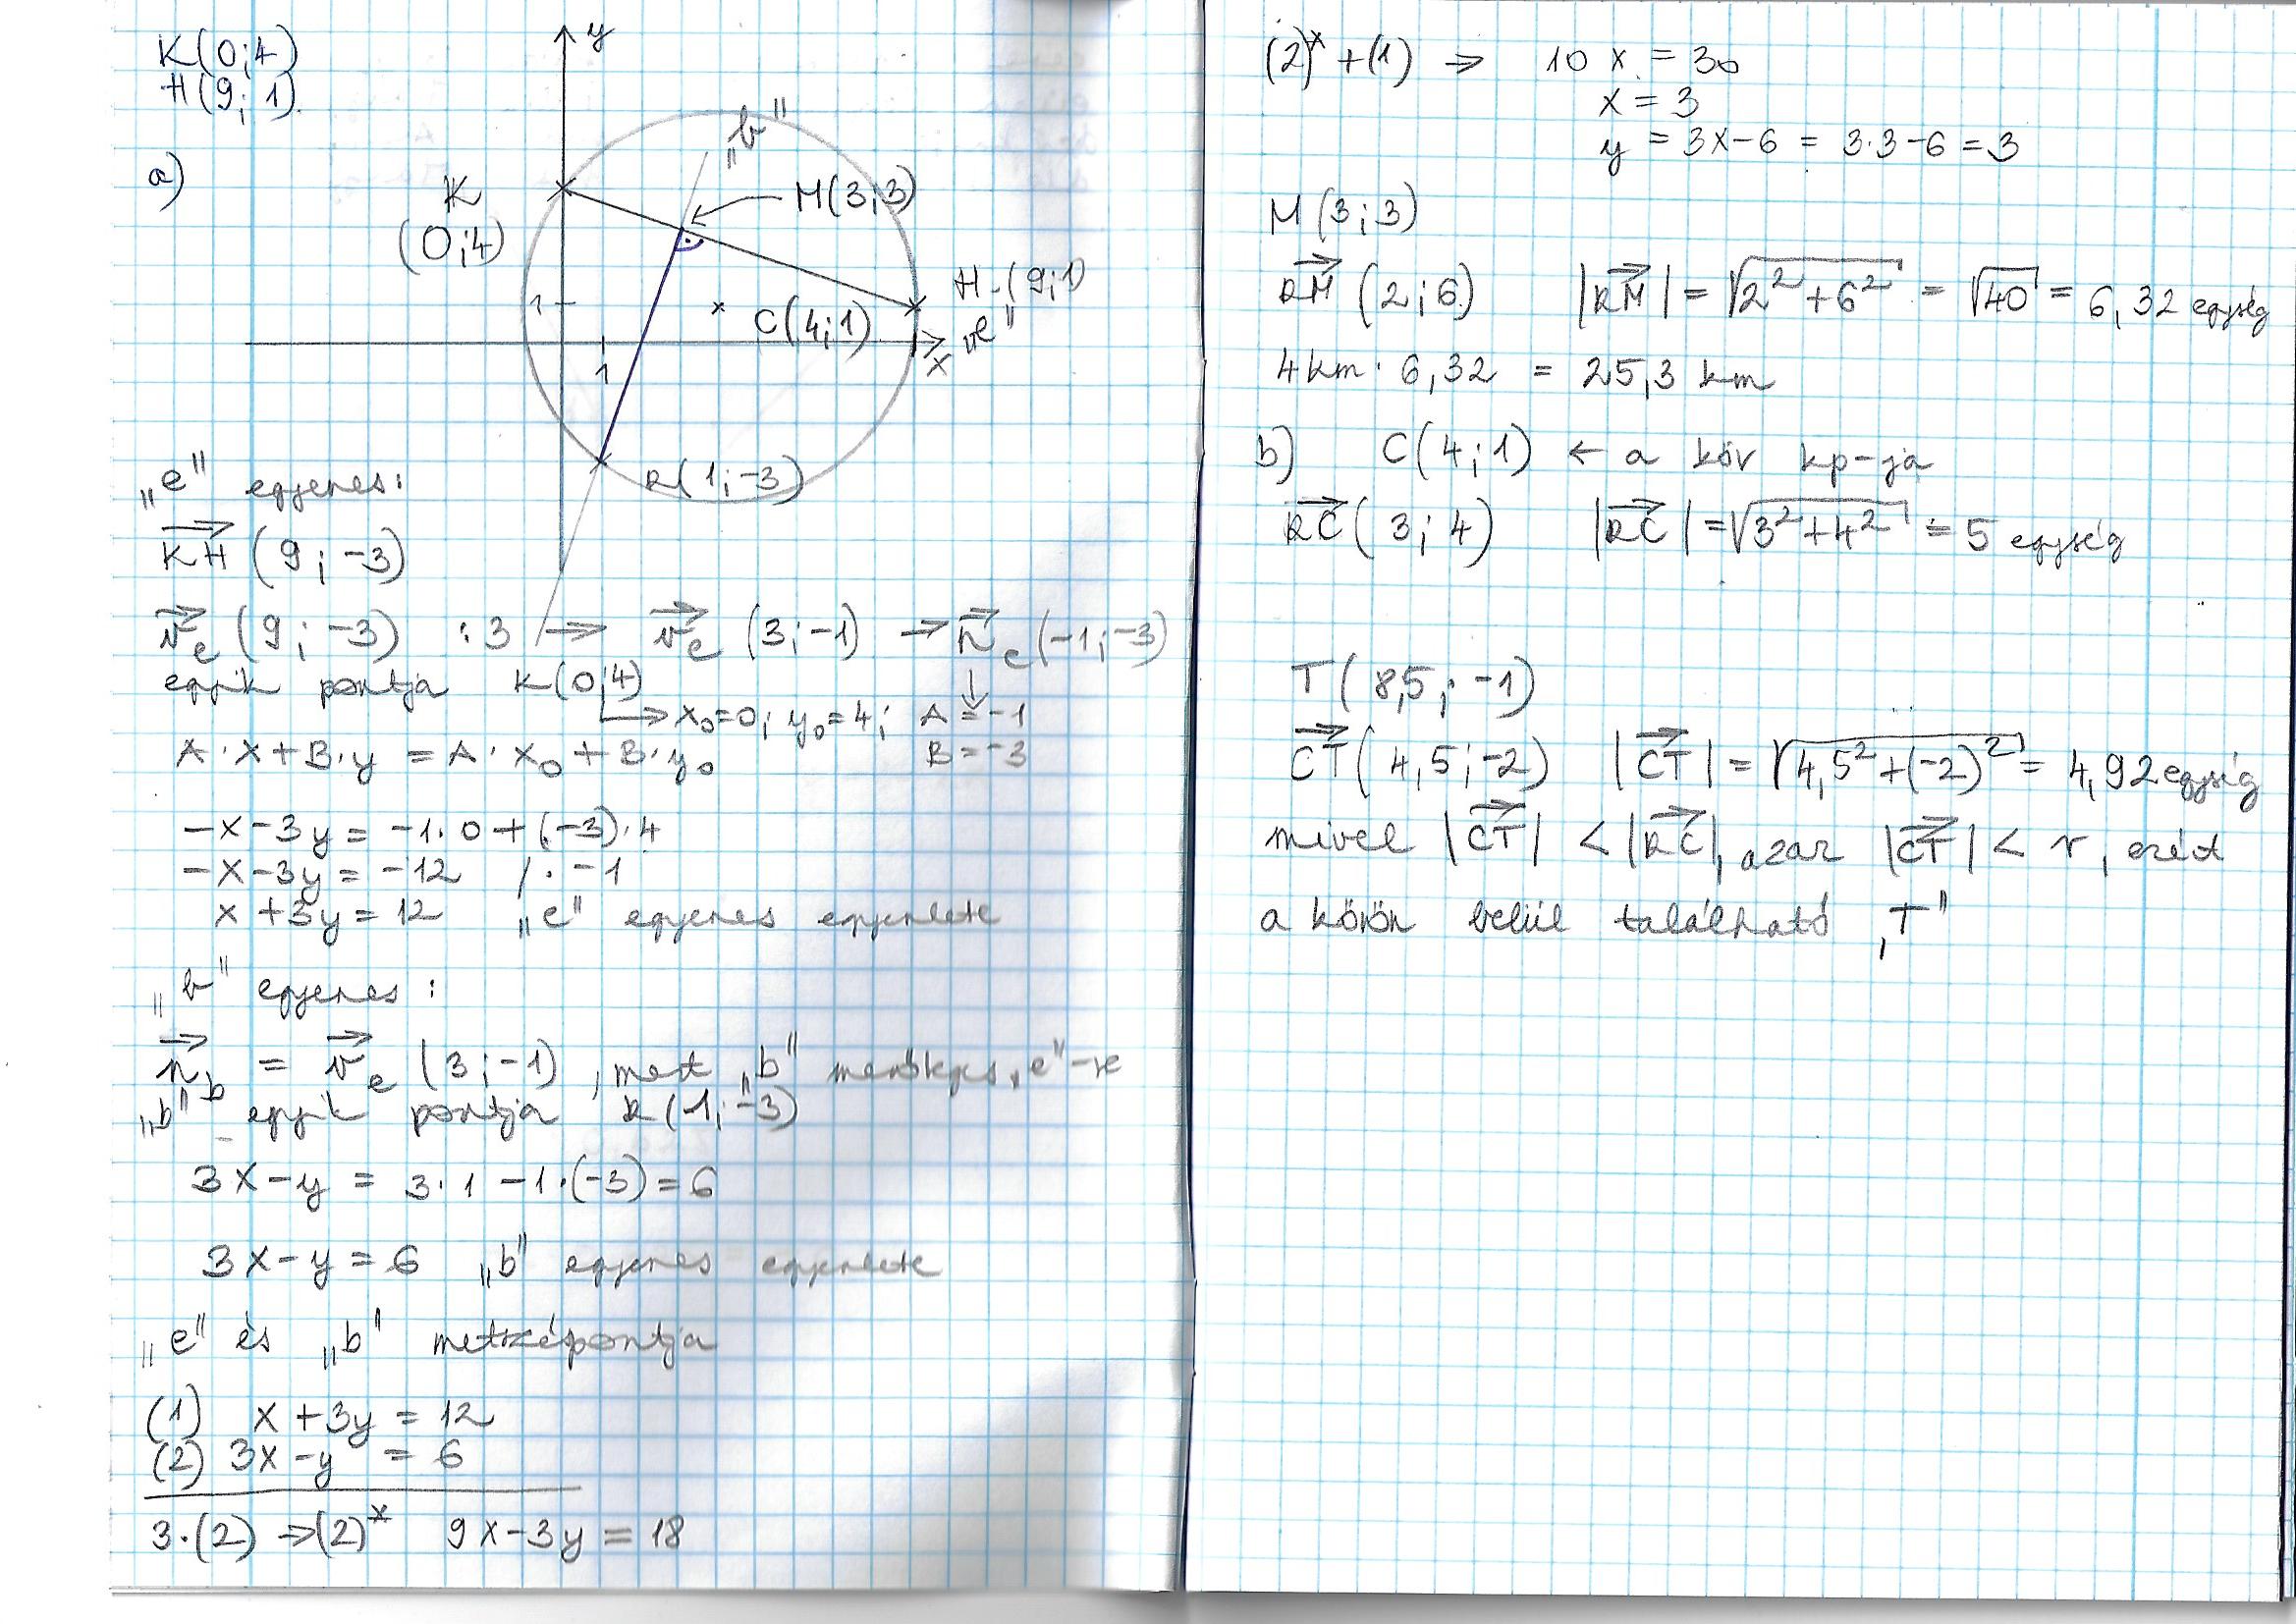 K(0;4)
H(9;1)
a)
y
„b"
K
(0;4)
M(3;3)
H(9;1)
„e"
1
C(4;1)
x
1
R(1;-3)
„e" egyenes:
KH (9;-3)
v_e (9;-3) :3 → v_e (3;-1) → n_e (-1;-3)
egyik pontja K(0;4)
→ x₀=0; y₀=4; A=-1
A·x+B·y = A·x₀+B·y₀ B=-3
-x-3y = -1·0+(-3)·4
-x-3y = -12 /·-1
x+3y = 12 „e" egyenes egyenlete
„b" egyenes:
n_b = v_e (3;-1), mert „b" merőleges „e"-re
„b" egyik pontja R(1;-3)
3x-y = 3·1-1·(-3)=6
3x-y = 6 „b" egyenes egyenlete
„e" és „b" metszéspontja
(1) x+3y = 12
(2) 3x-y = 6
3·(2) ⇒ (2)* 9x-3y = 18
(2)*+(1) ⇒ 10x = 30
x = 3
y = 3x-6 = 3·3-6 = 3
M(3;3)
RM (2;6) |RM| = √2²+6² = √40 = 6,32 egység
4km·6,32 = 25,3 km
b) C(4;1) ← a kör kp-ja
RC (3;4) |RC| = √3²+4² = 5 egység
T(8,5;-1)
CT (4,5;-2) |CT| = √4,5²+(-2)² = 4,92 egység
mivel |CT| < |RC|, azaz |CT| < r, ezért
a körön belül található „T"